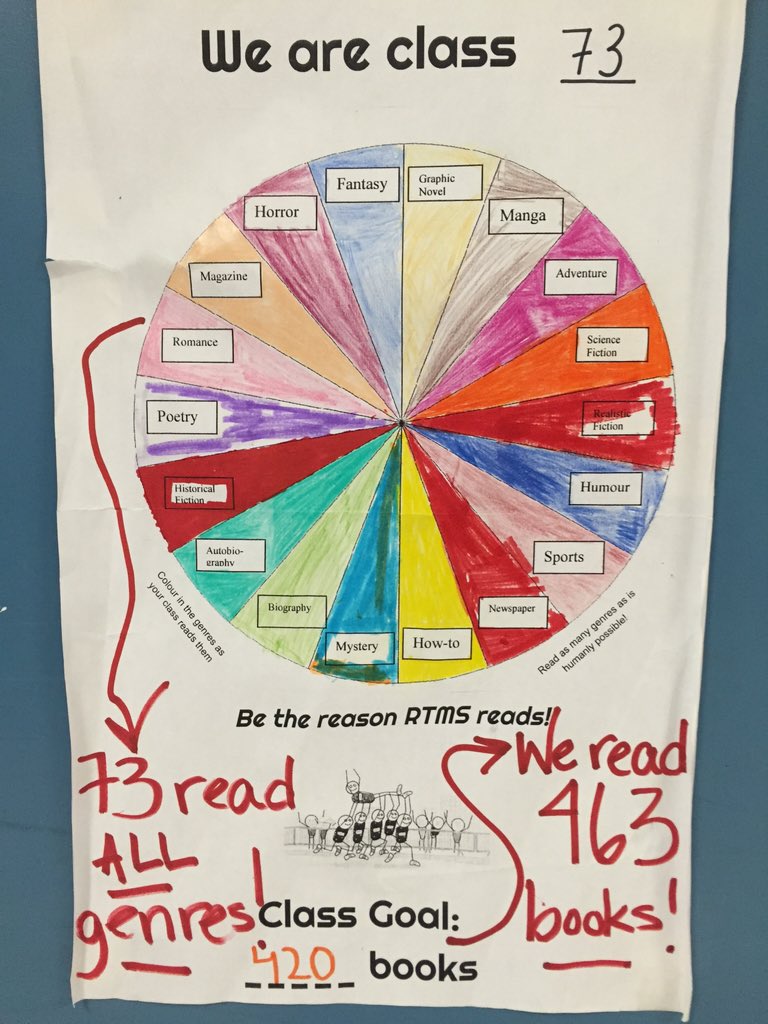 We are class 73
Fantasy
Graphic
Novel
Manga
Adventure
Science
Fiction
Realistic
Fiction
Humour
Sports
Newspaper
How-to
Mystery
Biography
Autobio-
graphy
Historical
Fiction
Poetry
Romance
Magazine
Horror
Colour in the genres as
your class reads them
Read as many genres as is
humanly possible!
Be the reason RTMS reads!
73 read
ALL
genres!
We read
463
books!
Class Goal:
420 books